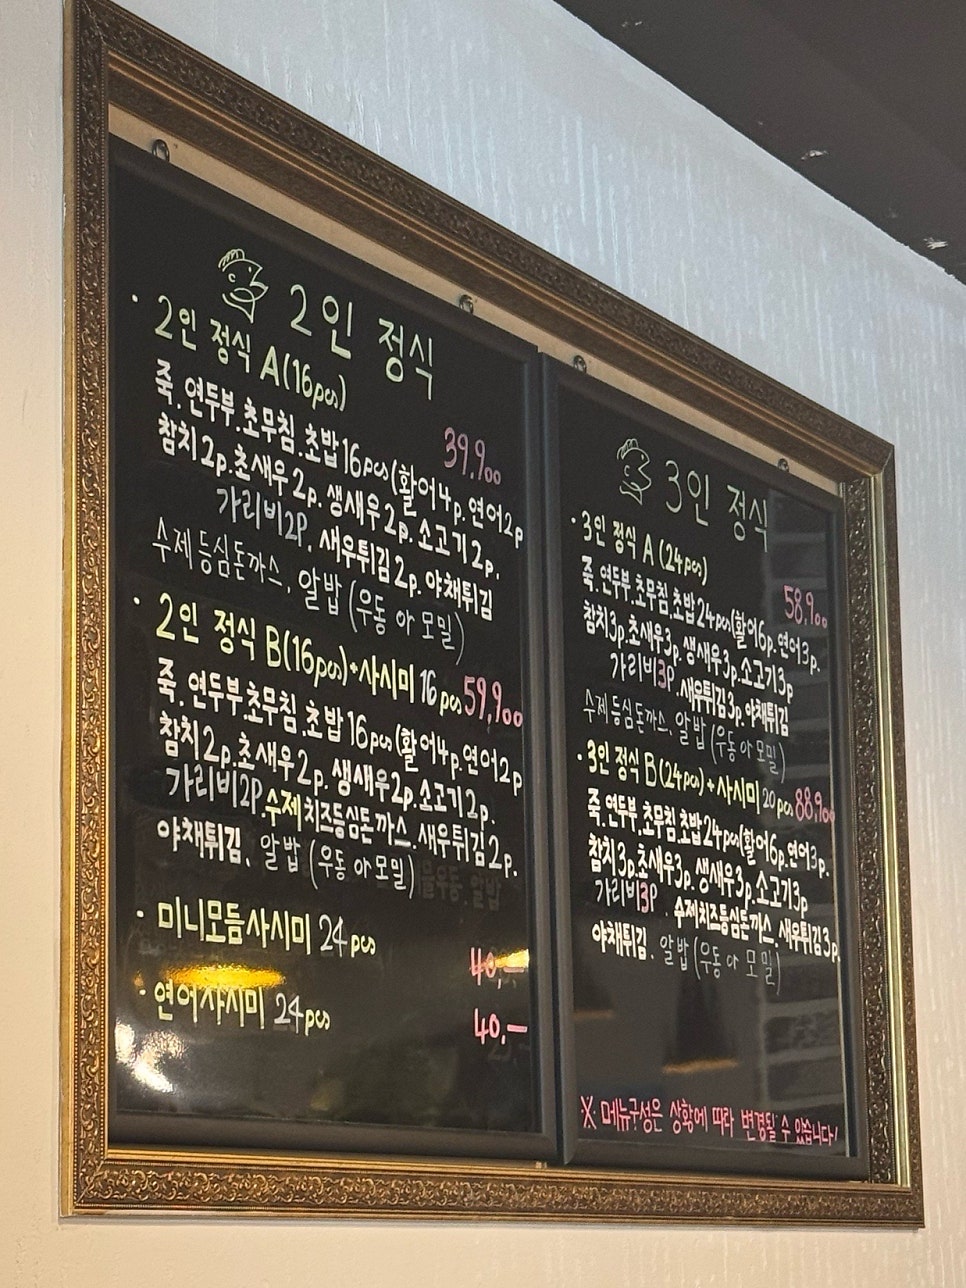 2인 정식
· 2인 정식 A(16pcs)
39,900
죽.연두부.초무침.초밥16pcs(활어4p.연어2p
참치2p.초새우2p.생새우2p.소고기2p.
가리비2P.새우튀김2p.야채튀김
수제등심돈까스, 알밥(우동 or 모밀)
· 2인 정식 B(16pcs)+사시미 16pcs 59,900
죽.연두부.초무침.초밥16pcs(활어4p.연어2p
참치2p.초새우2p.생새우2p.소고기2p.
가리비2P.수제치즈등심돈까스.새우튀김2p.
야채튀김. 알밥(우동 or 모밀)
· 미니모듬사시미 24pcs
40,-
· 연어사시미 24pcs
40,-
3인 정식
· 3인 정식 A(24pcs)
58,900
죽.연두부.초무침.초밥24pcs(활어6p.연어3p.
참치3p.초새우3p.생새우3p.소고기3p
가리비3P.새우튀김3p.야채튀김
수제등심돈까스.알밥(우동 or 모밀)
· 3인 정식 B(24pcs)+사시미20pcs 88,900
죽.연두부.초무침.초밥24pcs(활어6p.연어3p.
참치3p.초새우3p.생새우3p.소고기3p
가리비3P. 수제치즈등심돈까스.새우튀김3p.
야채튀김. 알밥(우동 or 모밀)
※.메뉴구성은 상황에 따라 변경될 수 있습니다!